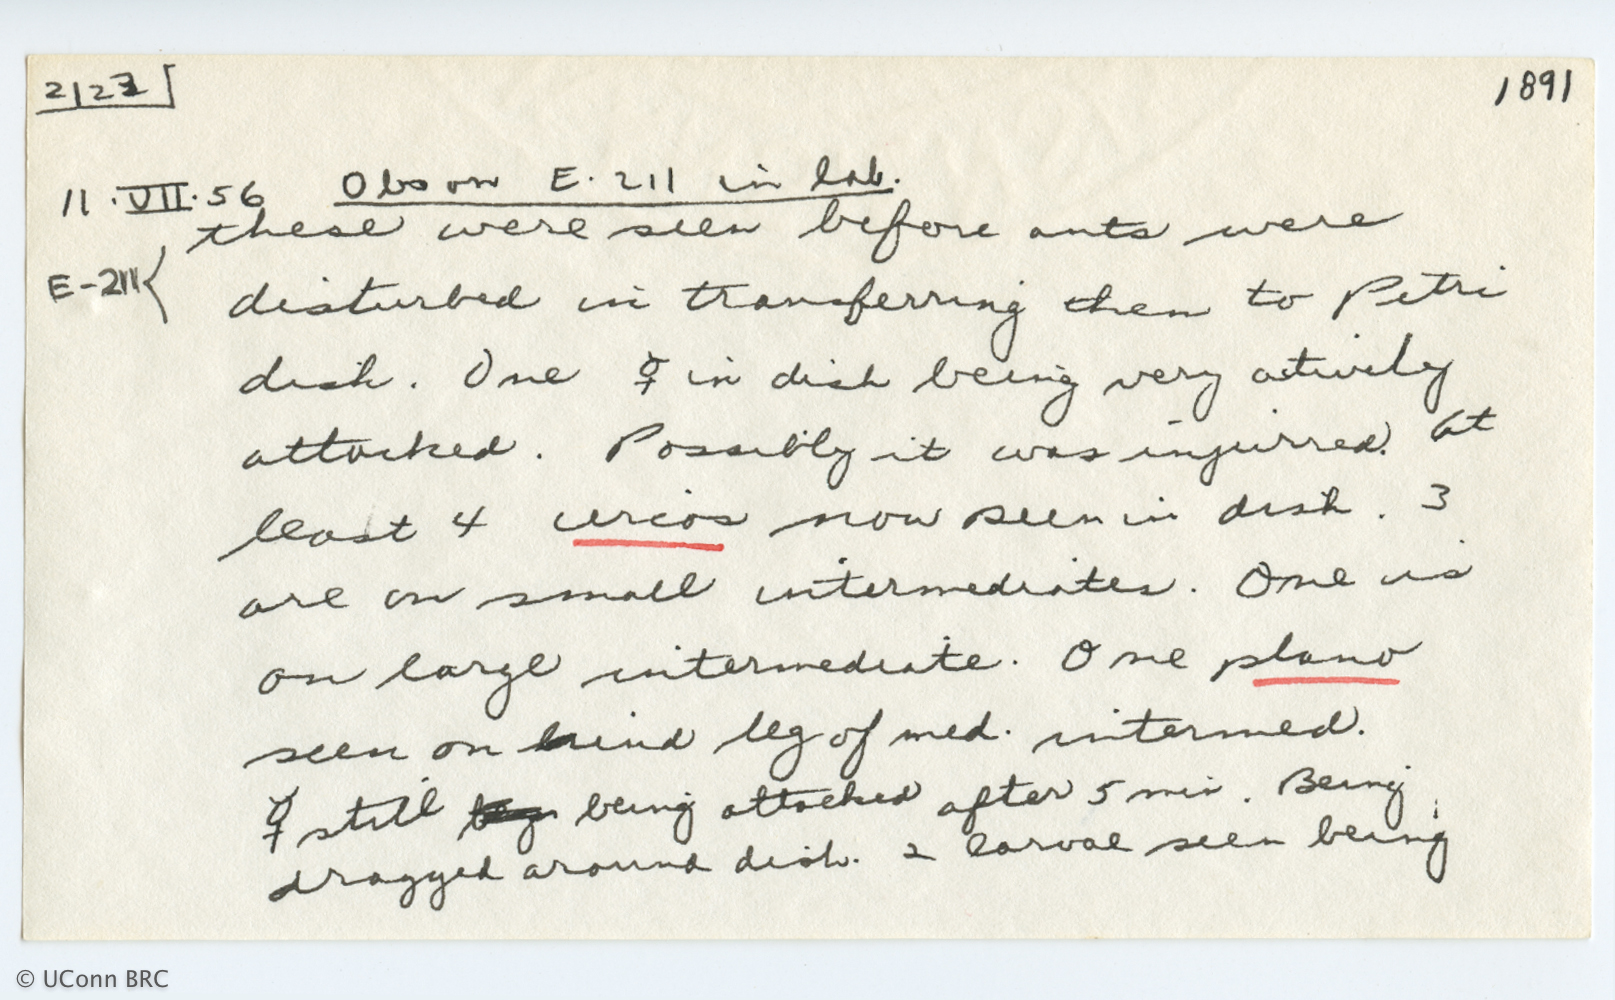 2123
1891
11.VII.56 Obs on E.211 in lab.
these were seen before ants were
E-211 disturbed in transferring them to Petri
dish. One ☿ in dish being very actively
attacked. Possibly it was injurred. At
least 4 cercos now seen in dish. 3
are on small intermediates. One is
on large intermediate. One plano
seen on hind leg of med. intermed.
☿ still being attacked after 5 min. Being
dragged around dish. 2 larvae seen being
© UConn BRC